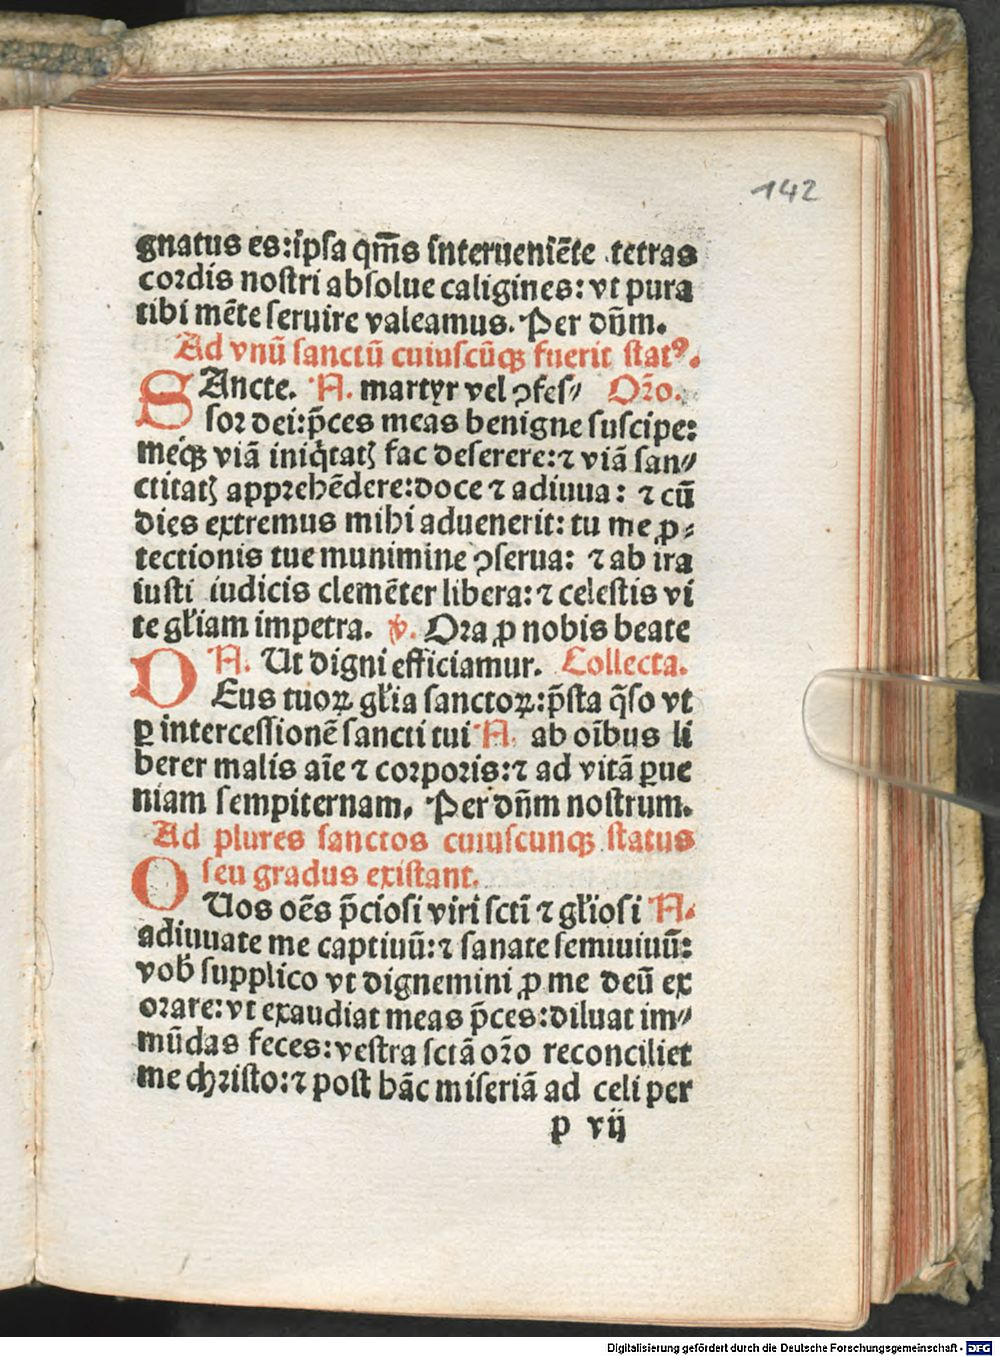 142
gnatus es: ipsa qm̄s interueniēte tetras
cordis nostri absolue caligines: vt pura
tibi mēte seruire valeamus. Per dn̄m.
Ad vnū sanctū cuiuscūqꝫ fuerit statꝰ.
SAncte. A. martyr vel ꝯfes⸗ Or̄o.
sor dei: p̄ces meas benigne suscipe:
meqꝫ viā iniq̇tatꝭ fac deserere: ⁊ viā san⸗
ctitatꝭ apprehēdere: doce ⁊ adiuua: ⁊ cū
dies extremus mihi aduenerit: tu me ꝓ⸗
tectionis tue munimine ꝯserua: ⁊ ab ira
iusti iudicis clemēter libera: ⁊ celestis vi
te gl̄iam impetra. ℣. Ora ꝓ nobis beate
A. Ut digni efficiamur. Collecta.
DEus tuoꝝ gl̄ia sanctoꝝ: p̄sta q̄so vt
ꝑ intercessionē sancti tui A. ab oībus li
berer malis aīe ⁊ corporis: ⁊ ad vitā ꝑue
niam sempiternam. Per dn̄m nostrum.
Ad plures sanctos cuiuscunqꝫ status
seu gradus existant.
OUos oēs p̄ciosi viri sctī ⁊ gl̄iosi A.
adiuuate me captiuū: ⁊ sanate semiuiuū:
vob̄ supplico vt dignemini ꝓ me deū ex
orare: vt exaudiat meas p̄ces: diluat im⸗
mūdas feces: vestra sctā or̄o reconciliet
me christo: ⁊ post hāc miseriā ad celi per
p vij
Digitalisierung gefördert durch die Deutsche Forschungsgemeinschaft - DFG